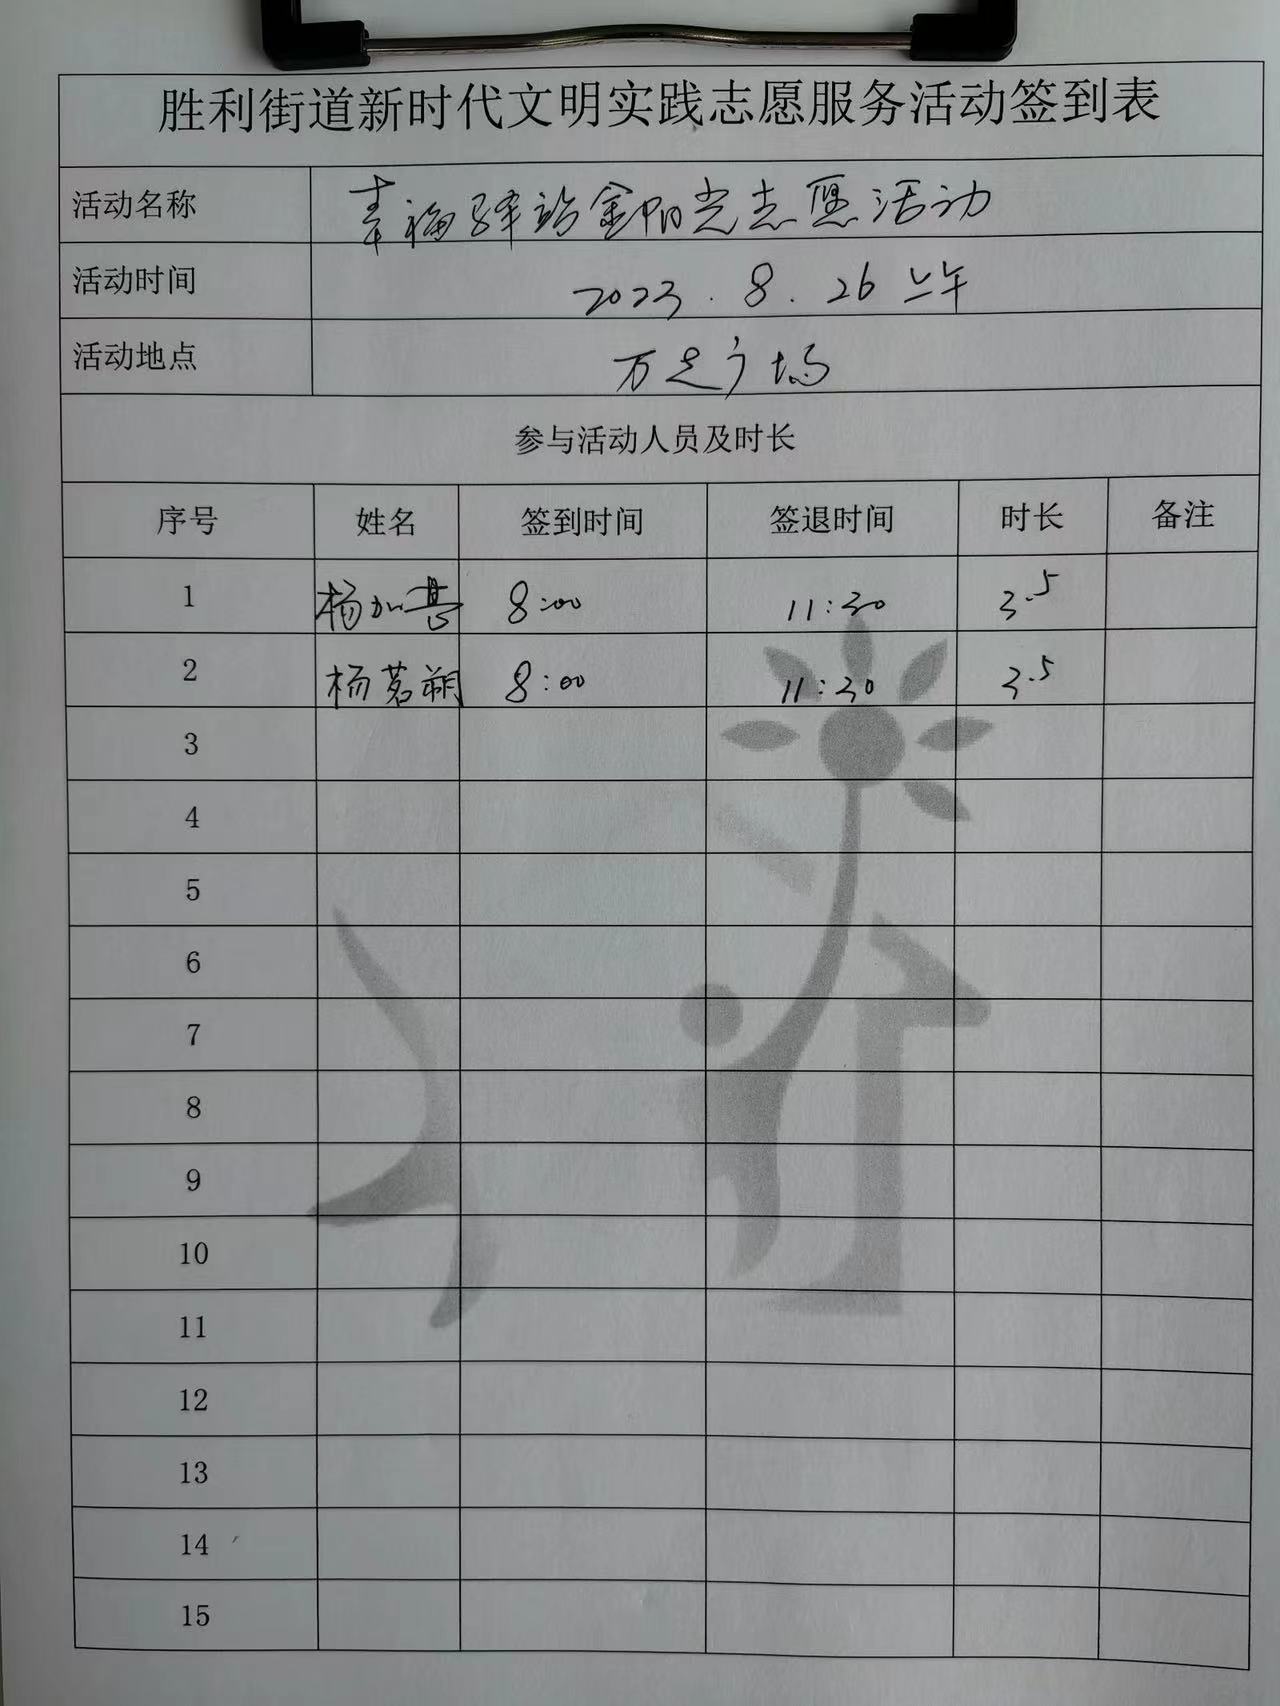 胜利街道新时代文明实践志愿服务活动签到表
活动名称 幸福驿站金阳光志愿活动
活动时间 2023.8.26 上午
活动地点 万达广场
参与活动人员及时长
序号 姓名 签到时间 签退时间 时长 备注
1 杨加 8:00 11:30 3.5
2 杨茗朔 8:00 11:30 3.5
3
4
5
6
7
8
9
10
11
12
13
14
15